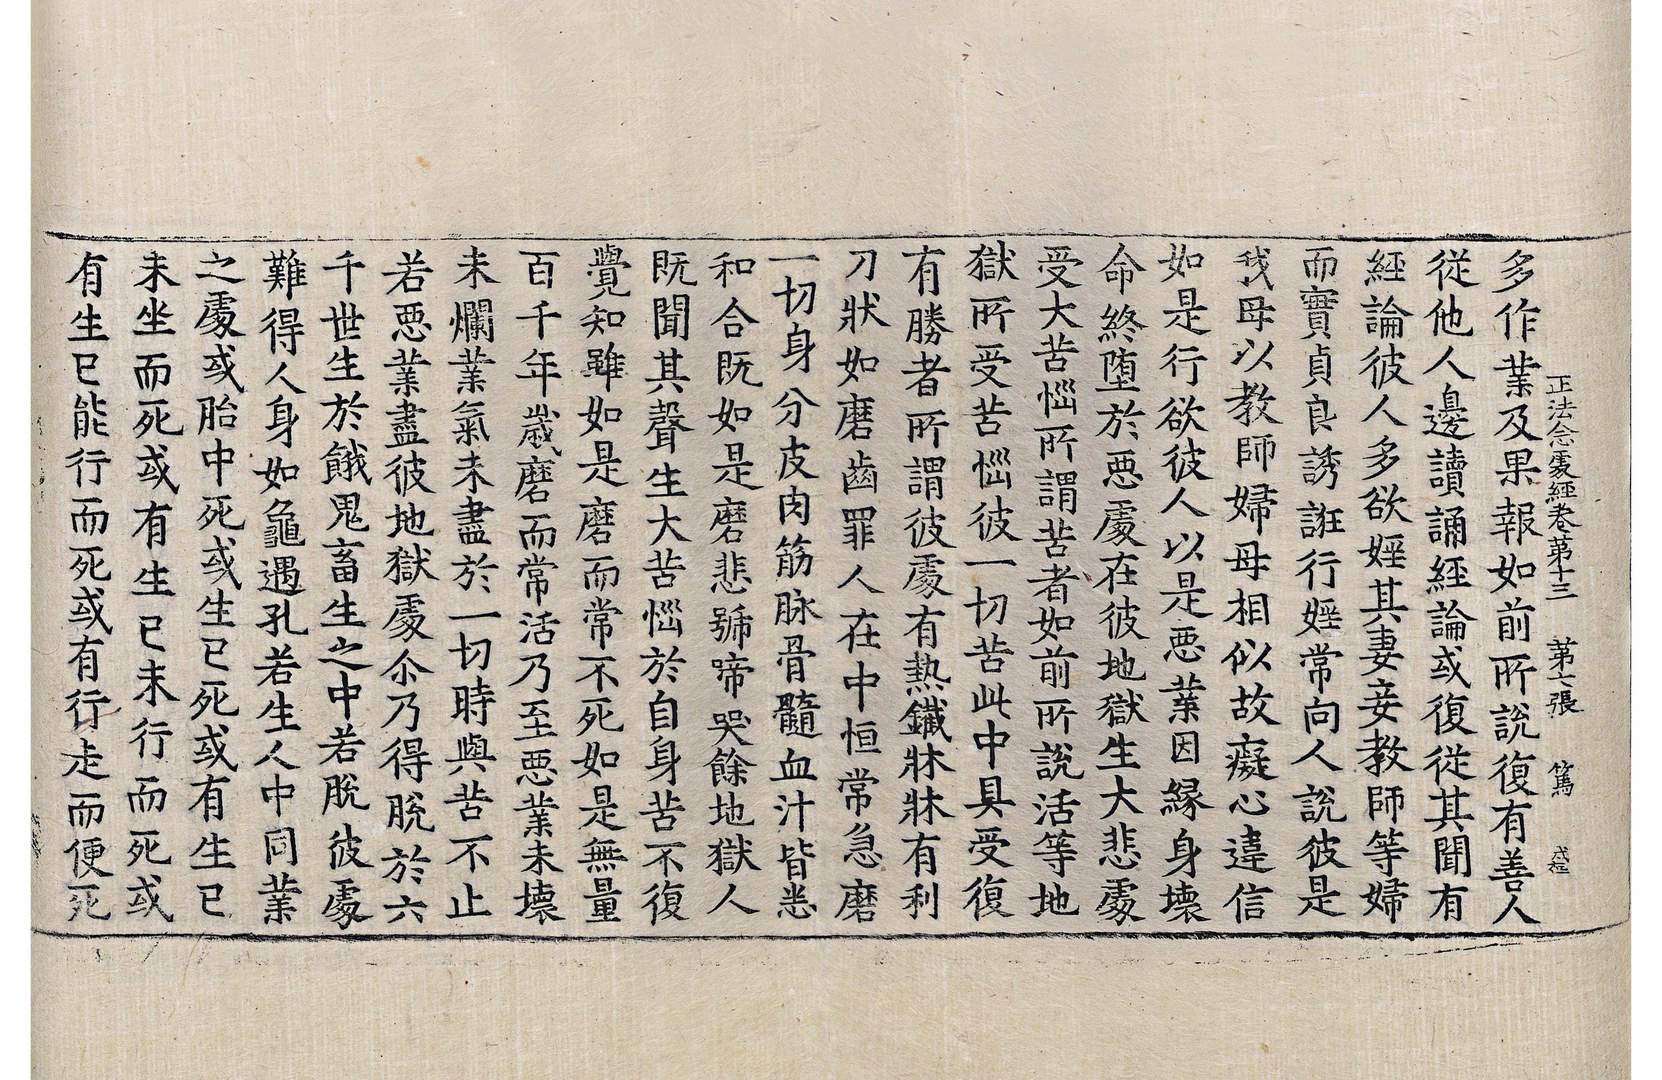 正法念處經卷第十三 第七張 篤
多作業及果報如前所說復有善人
從他人邊讀誦經論或復從其聞有
經論彼人多欲婬其妻妾教師等婦
而實貞良誘誑行婬常向人說彼是
我母以教師婦母相似故癡心違信
如是行欲彼人以是惡業因緣身壞
命終墮於惡處在彼地獄生大悲處
受大苦惱所謂苦者如前所說活等地
獄所受苦惱彼一切苦此中具受復
有勝者所謂彼處有熱鐵牀牀有利
刀狀如磨齒罪人在中恒常急磨
一切身分皮肉筋脉骨髓血汁皆悉
和合既如是磨悲號啼哭餘地獄人
既聞其聲生大苦惱於自身苦不復
覺知雖如是磨而常不死如是無量
百千年歲磨而常活乃至惡業未壞
未爛業氣未盡於一切時與苦不止
若惡業盡彼地獄處尒乃得脫於六
千世生於餓鬼畜生之中若脫彼處
難得人身如龜遇孔若生人中同業
之處或胎中死或生已死或有生已
未坐而死或有生已未行而死或
有生已能行而死或有行走而便死